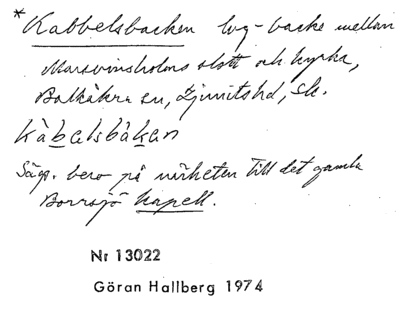 * Kabbelsbacken lvg-backe mellan
Marsvinsholms slott och kyrka,
Balkåkra sn, Ljunitshd, Sk.
kàbelsbàkan
Säges. bero på närheten till det gamla
Borrsjö kapell.
Nr 13022
Göran Hallberg 1974